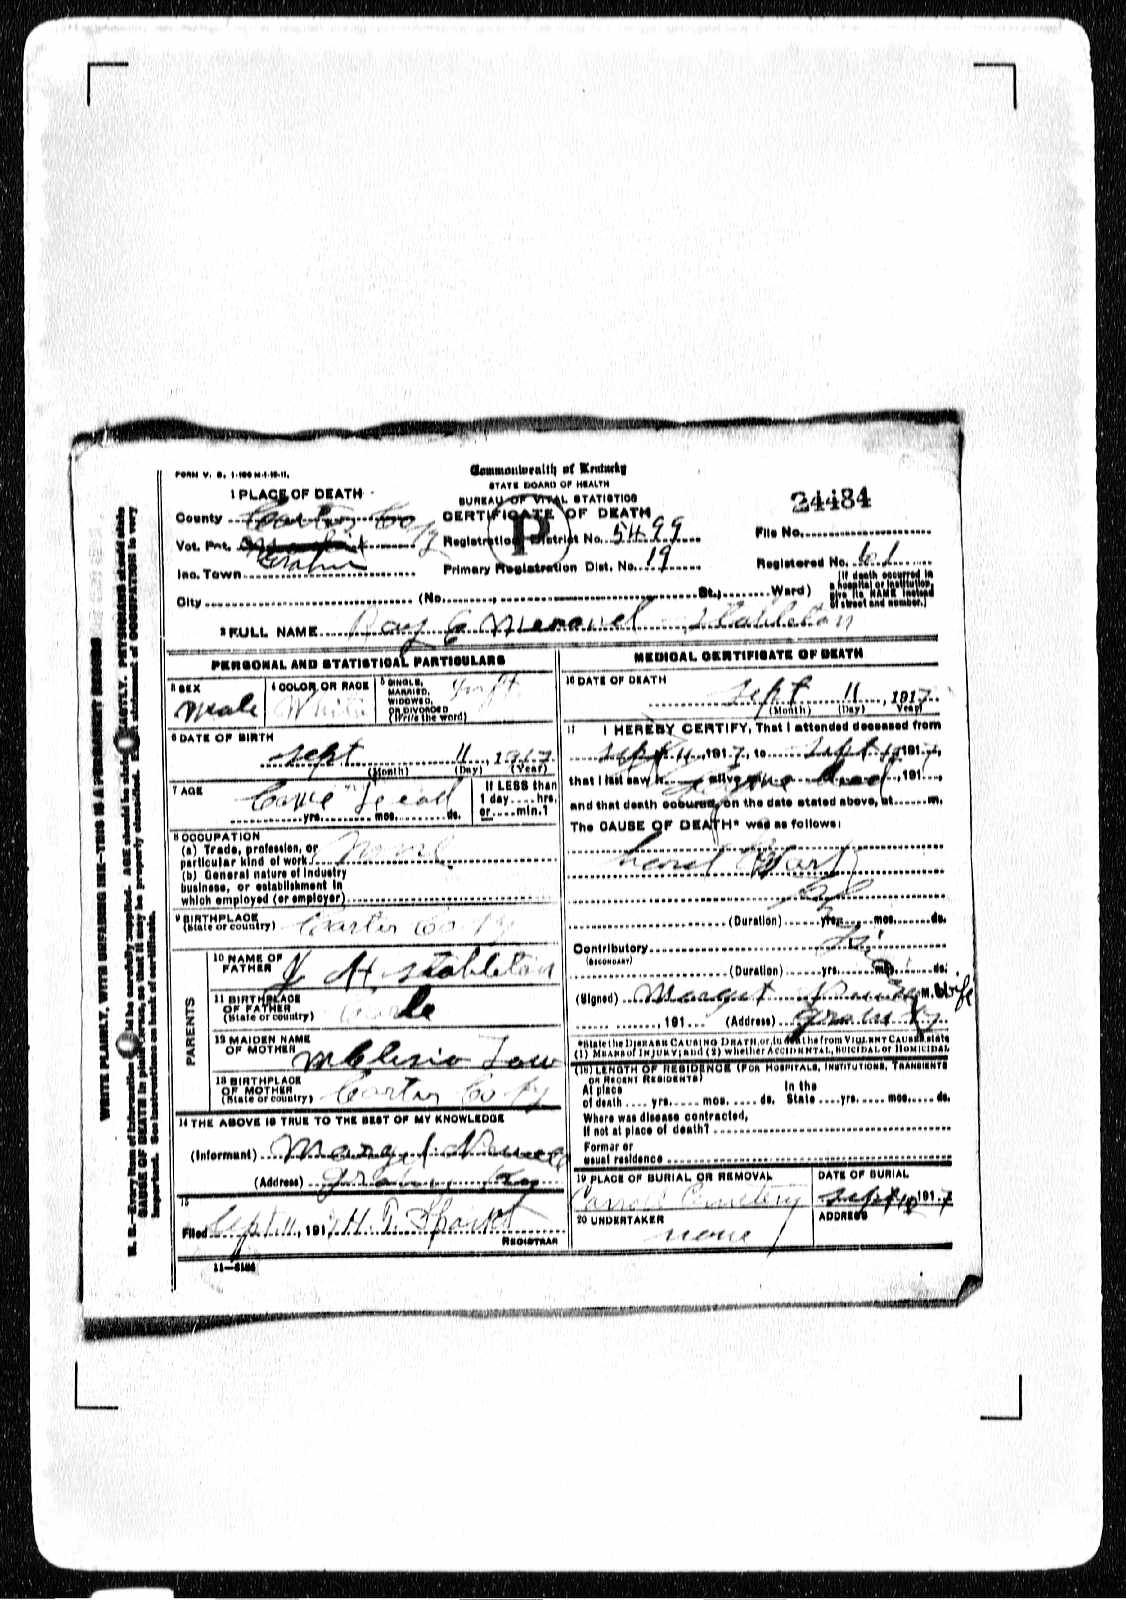 FORM V. S. 1-100 M-1-10-11.
Commonwealth of Kentucky
STATE BOARD OF HEALTH
BUREAU OF VITAL STATISTICS
CERTIFICATE OF DEATH
1 PLACE OF DEATH
County Carter Co Ky
Vot. Pct.
Inc. Town
City (No. St.; Ward)
Registration District No. 5499
Primary Registration Dist. No. 19
P
24484
File No.
Registered No. 61
(If death occurred in
a hospital or institution,
give its NAME instead
of street and number.)
2 FULL NAME Ray E Stableton
PERSONAL AND STATISTICAL PARTICULARS
3 SEX
Male
4 COLOR OR RACE
White
5 SINGLE,
MARRIED,
WIDOWED,
OR DIVORCED
(Write the word)
6 DATE OF BIRTH
Sept 11, 1917
(Month) (Day) (Year)
7 AGE
yrs. mos. ds.
If LESS than
1 day hrs.
or min.?
8 OCCUPATION
(a) Trade, profession, or
particular kind of work None
(b) General nature of industry
business, or establishment in
which employed (or employer)
9 BIRTHPLACE
(State or country) Carter Co Ky
PARENTS
10 NAME OF
FATHER J H Stableton
11 BIRTHPLACE
OF FATHER
(State or country)
12 MAIDEN NAME
OF MOTHER
13 BIRTHPLACE
OF MOTHER
(State or country) Carter Co Ky
14 THE ABOVE IS TRUE TO THE BEST OF MY KNOWLEDGE
(Informant) Marget
(Address) Ky
15
Filed Sept 11, 1917 H. T.
REGISTRAR
11—5184
MEDICAL CERTIFICATE OF DEATH
16 DATE OF DEATH
Sept 11, 1917
(Month) (Day) Year
17 I HEREBY CERTIFY, That I attended deceased from
Sept 11, 1917, to Sept 1917,
that I last saw h alive 191,
and that death occurred, on the date stated above, at m.
The CAUSE OF DEATH* was as follows:
(Duration) yrs. mos. ds.
Contributory
(SECONDARY)
(Duration) yrs. mos. ds.
(Signed) Marget M.D. Wife
, 191 (Address) Ky
*State the DISEASE CAUSING DEATH, or, in deaths from VIOLENT CAUSES, state
(1) MEANS of INJURY; and (2) whether ACCIDENTAL, SUICIDAL or HOMICIDAL
(18) LENGTH OF RESIDENCE (FOR HOSPITALS, INSTITUTIONS, TRANSIENTS
OR RECENT RESIDENTS)
At place In the
of death yrs. mos. ds. State yrs. mos. ds.
Where was disease contracted,
if not at place of death?
Former or
usual residence
19 PLACE OF BURIAL OR REMOVAL
Carroll Cemetery
DATE OF BURIAL
Sept 12 1917
20 UNDERTAKER
none
ADDRESS
WRITE PLAINLY, WITH UNFADING INK—THIS IS A PERMANENT RECORD
N. B.—Every item of information should be carefully supplied. AGE should be stated EXACTLY. PHYSICIANS should state
CAUSE OF DEATH in plain terms, so that it may be properly classified. Exact statement of OCCUPATION is very
important. See instructions on back of certificate.